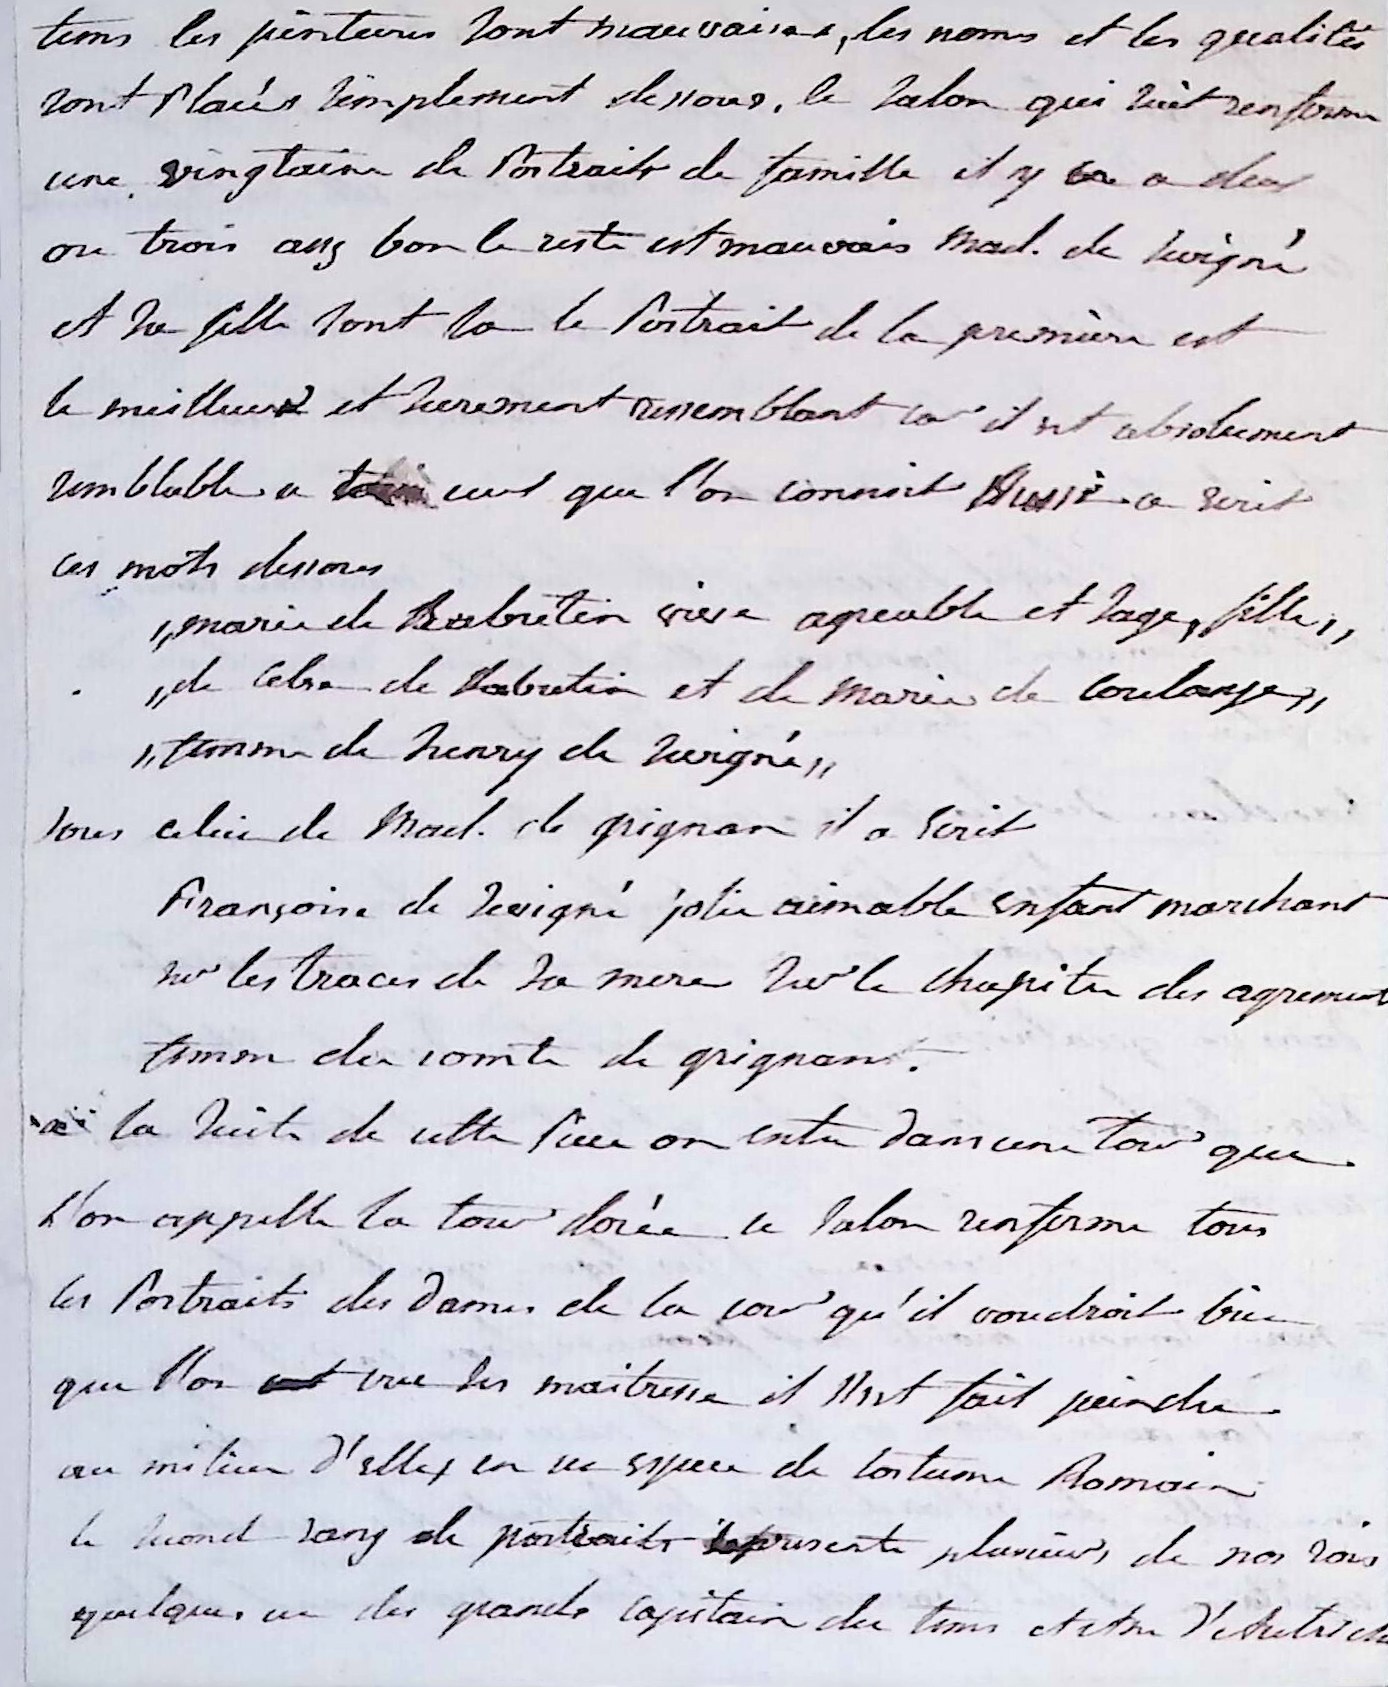 tems les peintures sont mauvaises, les noms et les qualités
sont placés simplement dessous. le salon qui suit renferme
une vingtaine de Portraits de famille il y a deux
ou trois assez bon le reste est mauvais Mad. de Sevigné
et sa fille sont la le Portrait de la premiere est
le meilleur et surement ressemblant car il est absolument
semblable a ceux que l'on connoit Bussi a ecrit
ces mots dessous
"marie de Rabutin vive agreable et sage, fille"
"de Celse de Rabutin et de Marie de Coulange"
"femme de henry de Sevigné"
sous celui de Mad. de grignan il a ecrit
Françoise de Sevigné jolie aimable enfant marchant
sur les traces de sa mere sur le chapitre des agrement
femme du comte de grignan.
a la suite de cette Piece on entre dans une tour que
l'on appelle la tour dorée ce salon renferme tous
les Portraits des Dames de la cour qu'il voudroit bien
que l'on crut ses maitresse il s'est fait peindre
au milieu d'elles en un espece de costume Romain
le second rang de portraits represente plusieurs de nos rois
quelques un des grands capitain du tems et